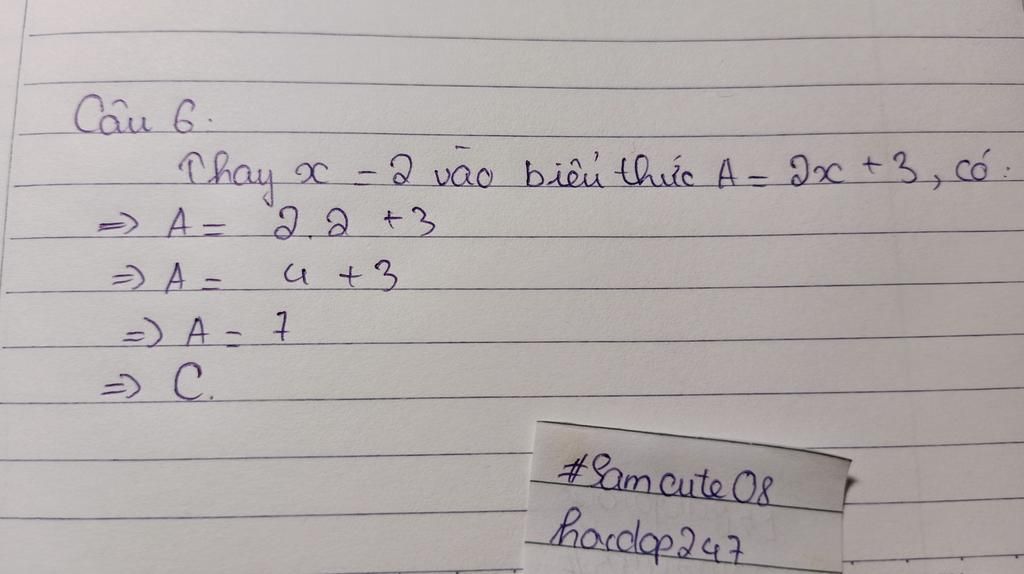 Câu 6.
Thay x = 2 vào biểu thức A = 2x + 3, có:
=> A = 2.2 + 3
=> A = 4 + 3
=> A = 7
=> C.
#Samcute08
hoidap247